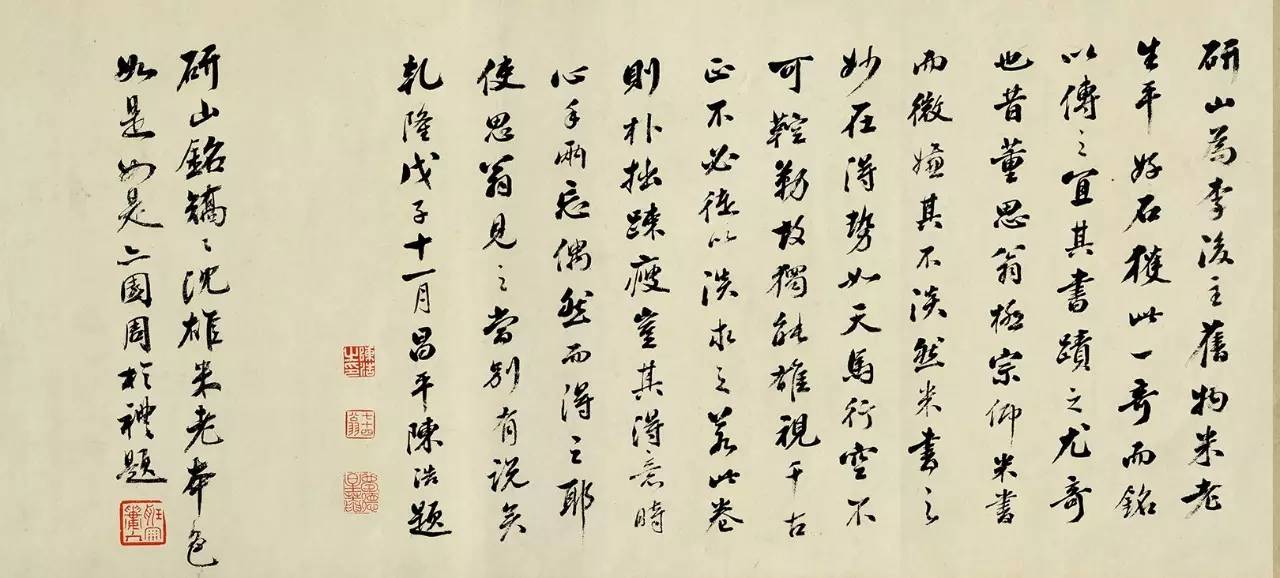 研山為李後主舊物米老
生平好石獲此一奇而銘
以傳之宜其書蹟之尤奇
也昔董思翁極宗仰米書
而微嫌其不淡然米書之
妙在得勢如天馬行空不
可鞚勒故獨能雄視千古
正不必徒以淡求之若此卷
則朴拙疎瘦豈其得意時
心手兩忘偶然而得之耶
使思翁見之當別有説矣
乾隆戊子十一月昌平陳浩題
陳浩
之印
七十四
翁
研山銘鐫之沈雄米老本色
如是如是六國周於禮題